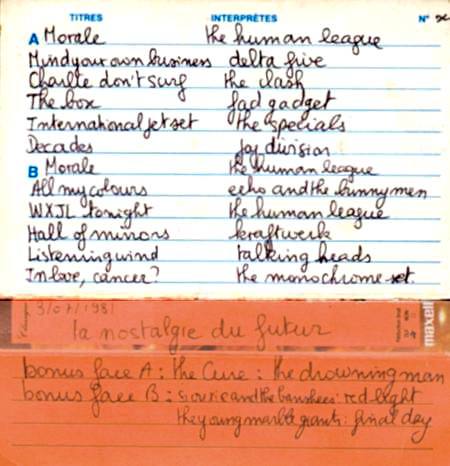 TITRES INTERPRÈTES N°
A Morale the human league
Mind your own business delta five
Charlie don't surf the clash
The box fad gadget
International jet set the specials
Decades joy division
B Morale the human league
All my colours echo and the bunny men
WXJL tonight the human league
Hall of mirrors kraftwerk
Listening wind talking heads
In love, cancer? the monochrome set.
3/07/1981
la nostalgie du futur
maxell
bonus face A : the Cure : the drowning man
bonus face B : siouxie and the banshees: red light
the young marble giants: final day